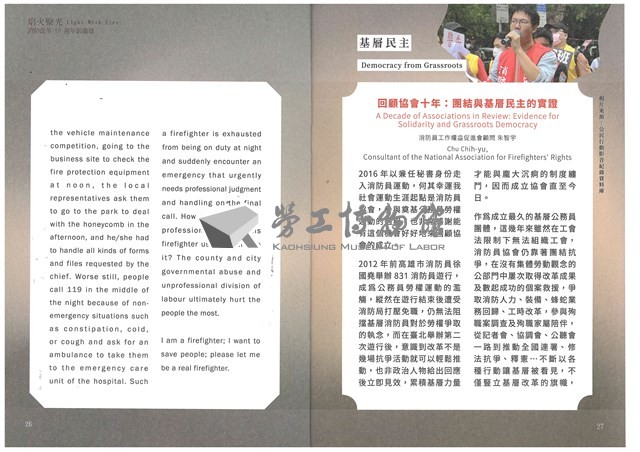 焰火聚光 Light With Fire
the vehicle maintenance
competition, going to the
business site to check the
fire protection equipment
at noon, the local
representatives ask them
to go to the park to deal
with the honeycomb in the
afternoon, and he/she had
to handle all kinds of forms
and files requested by the
chief. Worse still, people
call 119 in the middle of
the night because of non-
emergency situations such
as constipation, cold,
or cough and ask for an
ambulance to take them
to the emergency care
unit of the hospital. Such
a firefighter is exhausted
from being on duty at night
and suddenly encounter an
emergency that urgently
needs professional judgment
and handling on the final
call. How
profession
firefighter
it? The county and city
governmental abuse and
unprofessional division of
labour ultimately hurt the
people the most.
I am a firefighter; I want to
save people; please let me
be a real firefighter.
26
基層民主
Democracy from Grassroots
回顧協會十年：團結與基層民主的實證
A Decade of Associations in Review: Evidence for
Solidarity and Grassroots Democracy
消防員工作權益促進會顧問 朱智宇
Chu Chih-yu,
Consultant of the National Association for Firefighters' Rights
2016 年以兼任秘書身份走
入消防員運動，何其幸運我
社會運動生涯起點是消防員
的成立。
2012 年前高雄市消防員徐
國堯舉辦 831 消防員遊行，
成為公務員勞權運動的濫
觴，縱然在遊行結束後遭受
消防局打壓免職，仍無法阻
擋基層消防員對於勞權爭取
的執念，而在臺北舉辦第二
次遊行後，意識到改革不是
幾場抗爭活動就可以輕鬆推
動，也非政治人物給出回應
後立即見效，累積基層力量
才能與龐大沉痾的制度纏
鬥，因而成立協會直至今
日。
作為成立最久的基層公務員
團體，這幾年來雖然在工會
法限制下無法組織工會，
消防員協會仍靠著團結抗
爭，在沒有集體勞動觀念的
公部門中屢次取得改革成果
及數起成功的個案救援，爭
取消防人力、裝備、蜂蛇業
務回歸、工時改革，參與殉
職案調查及殉職家屬陪伴，
從記者會、協調會、公聽會
一路到推動全國連署、修
法抗爭、釋憲…不斷以各
種行動讓基層被看見，不
僅豎立基層改革的旗幟，
27
勞工博物館
KAOHSIUNG MUSEUM OF LABOR